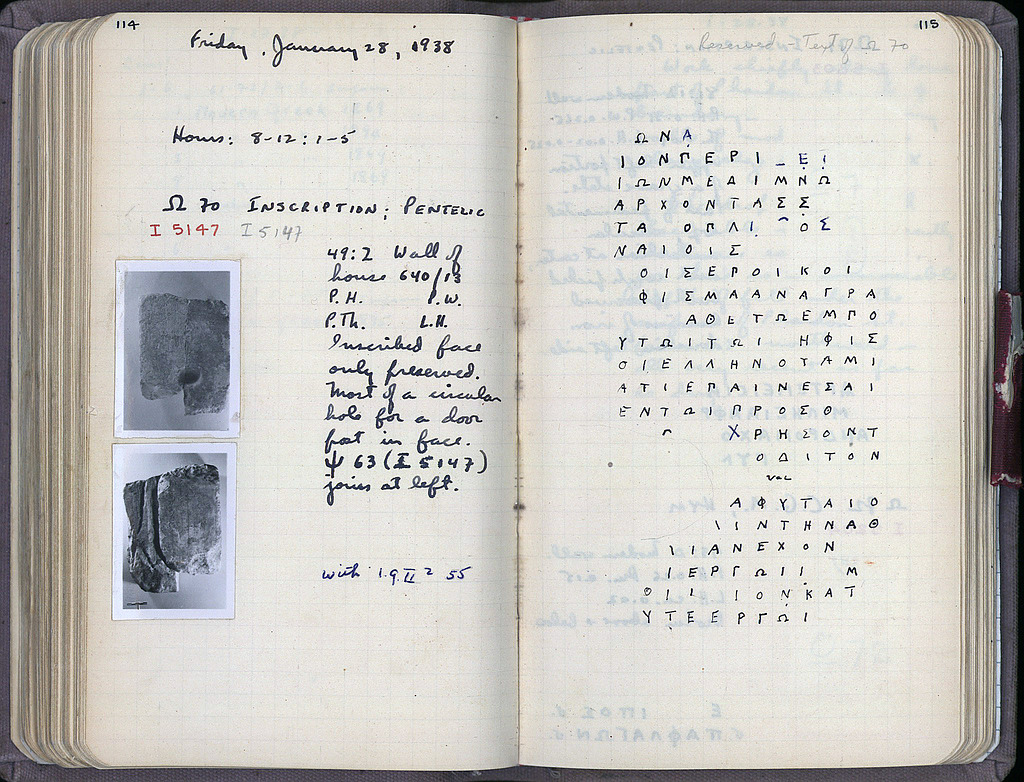 114
Friday, January 28, 1938
Hours: 8-12: 1-5
Ω 70 INSCRIPTION; PENTELIC
I 5147 I 5147
49:2 Wall of
house 640/13
P.H. P.W.
P.Th. L.H.
Inscribed face
only preserved.
Most of a circular
hole for a door
post in face.
Ψ 63 (I 5147)
joins at left.
with I.G. II² 55
115
Reserved Text of Ω 70
Ω Ν Α
Ι Ο Ν Γ Ε Ρ Ι _ Ε Ι
Ι Ω Ν Μ Ε Δ Ι Μ Ν Ω
Α Ρ Χ Ο Ν Τ Α Σ Σ
Τ Α Ο Π Λ Ι Ο Σ
Ν Α Ι Ο Ι Σ
Ο Ι Σ Ε Ρ Ο Ι Κ Ο Ι
Φ Ι Σ Μ Α Α Ν Α Γ Ρ Α
Α Θ Ε Τ Ω Ε Μ Π Ο
Υ Τ Ω Ι Τ Ω Ι Η Φ Ι Σ
Ο Ι Ε Λ Λ Η Ν Ο Τ Α Μ Ι
Α Τ Ι Ε Π Α Ι Ν Ε Σ Α Ι
Ε Ν Τ Ω Ι Π Ρ Ο Σ Ο
Χ Ρ Η Σ Ο Ν Τ
Ο Δ Ι Τ Ο Ν
vac
Α Φ Υ Τ Α Ι Ο
\ Ι Ν Τ Η Ν Α Θ
\ Ι Α Ν Ε Χ Ο Ν
Ι Ε Ρ Γ Ω Ι Ι Μ
Ο Ι Ι Ι Ο Ν Κ Α Τ
Υ Τ Ε Ε Ρ Γ Ω Ι